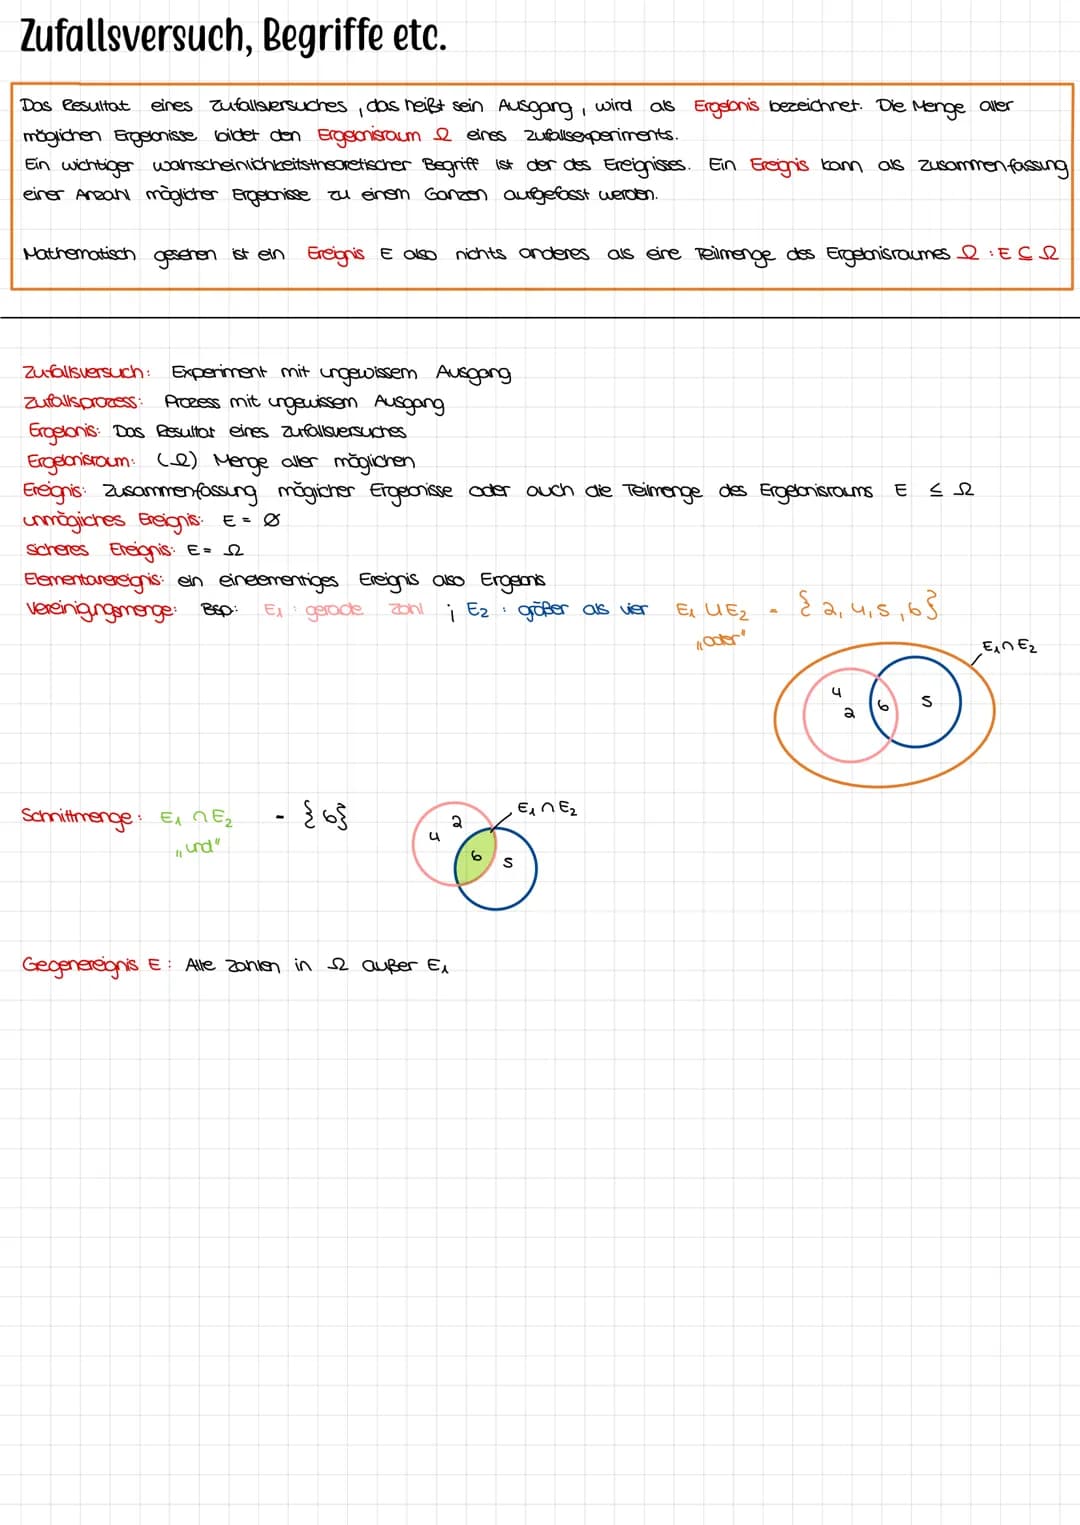 Zufallsversuch, Begriffe etc.
Das Resultat eines Zufallsversuches, das heißt sein Ausgang, wird als Ergebnis bezeichnet. Die Menge aller
möglichen Ergebnisse bildet den Ergebnisraum Ω eines Zufallsexperiments.
Ein wichtiger wahrscheinlichkeitstheoretischer Begriff ist der des Ereignisses. Ein Ereignis kann als Zusammenfassung
einer Anzahl möglicher Ergebnisse zu einem Ganzen aufgefasst werden.
Mathematisch gesehen ist ein Ereignis E also nichts anderes als eine Teilmenge des Ergebnisraumes Ω : E ⊆ Ω
Zufallsversuch: Experiment mit ungewissem Ausgang
Zufallsprozess: Prozess mit ungewissem Ausgang
Ergebnis: Das Resultat eines Zufallsversuches
Ergebnisraum: (Ω) Menge aller möglichen
Ereignis: Zusammenfassung möglicher Ergebnisse oder auch die Teilmenge des Ergebnisraums E ≤ Ω
unmögliches Ereignis: E = ∅
Sicheres Ereignis: E = Ω
Elementarereignis: ein einelementiges Ereignis also Ergebnis
Vereinigungsmenge: Bsp: E₁ : gerade Zahl ; E₂ : größer als vier E₁ ∪ E₂ = {2, 4, 5, 6}
„oder"
E₁ ∩ E₂
4
2 6 5
Schnittmenge: E₁ ∩ E₂ = {6}
„und"
E₁ ∩ E₂
2
4
6 5
Gegenereignis E : Alle Zahlen in Ω außer E₁